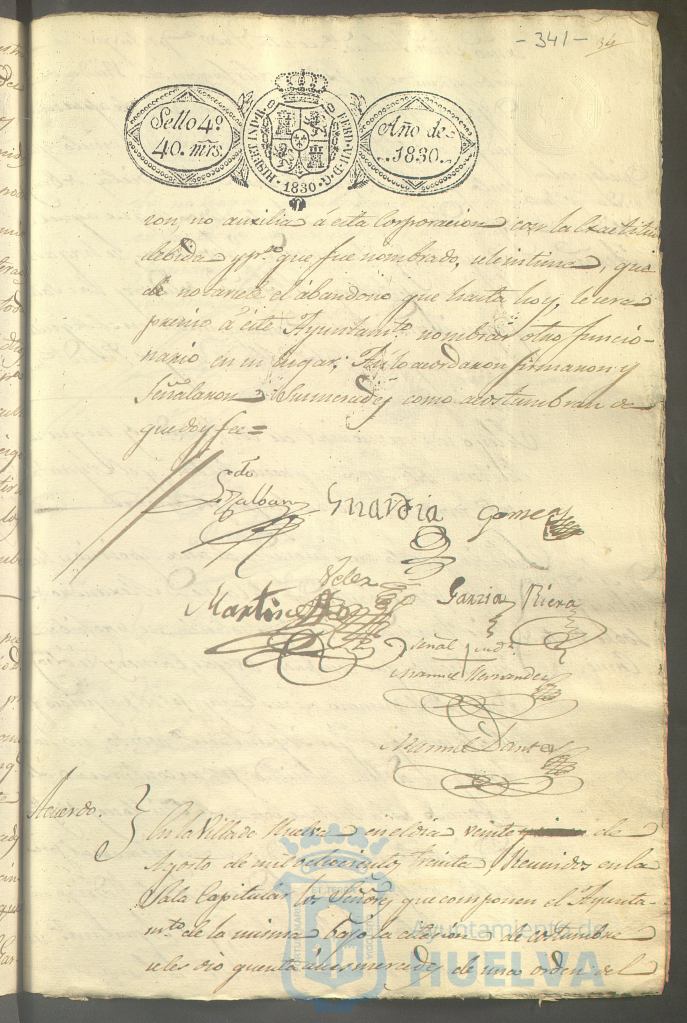 - 341 -
Sello 4.º
40. mrs.
HISP. ET IND. R.
FERD. VII. D. G.
1830
Año de
1830.
con, no auxilia á esta Corporacion con la exactitud
debida y pª. que fue nombrado, se le intime, que
de no
el abandono que hasta hoy, le será
preciso á este Ayuntamtº. nombrar otro funcio-
nario en su lugar; Asi lo acordaron firmaron y
Señalaron sus mercedes como acostumbran de
que doy fee=
Guardia
Gomez
Velez
Martinez
Garzia
Riera
Señal
Manuel Hernandez
Manuel
Acuerdo.
En la Villa de Huelva en el dia veinte
de
Agosto de mil ochocientos treinta, Reunidos en la
Sala Capitular los Señores que componen el Ayunta-
mtº. de la misma bajo la
de costumbre
se les dio quenta á sus mercedes de una orden del
Ayuntamiento de
HUELVA